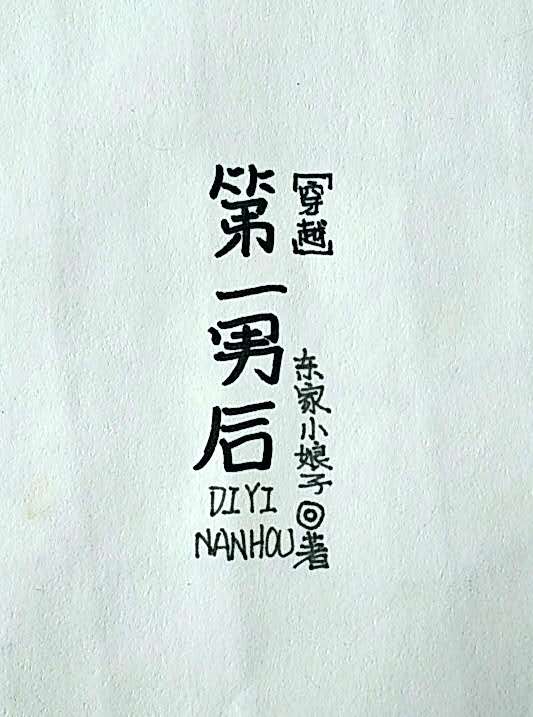 第一男后
DIYI
NANHOU
【穿越】
东家小娘子◎著